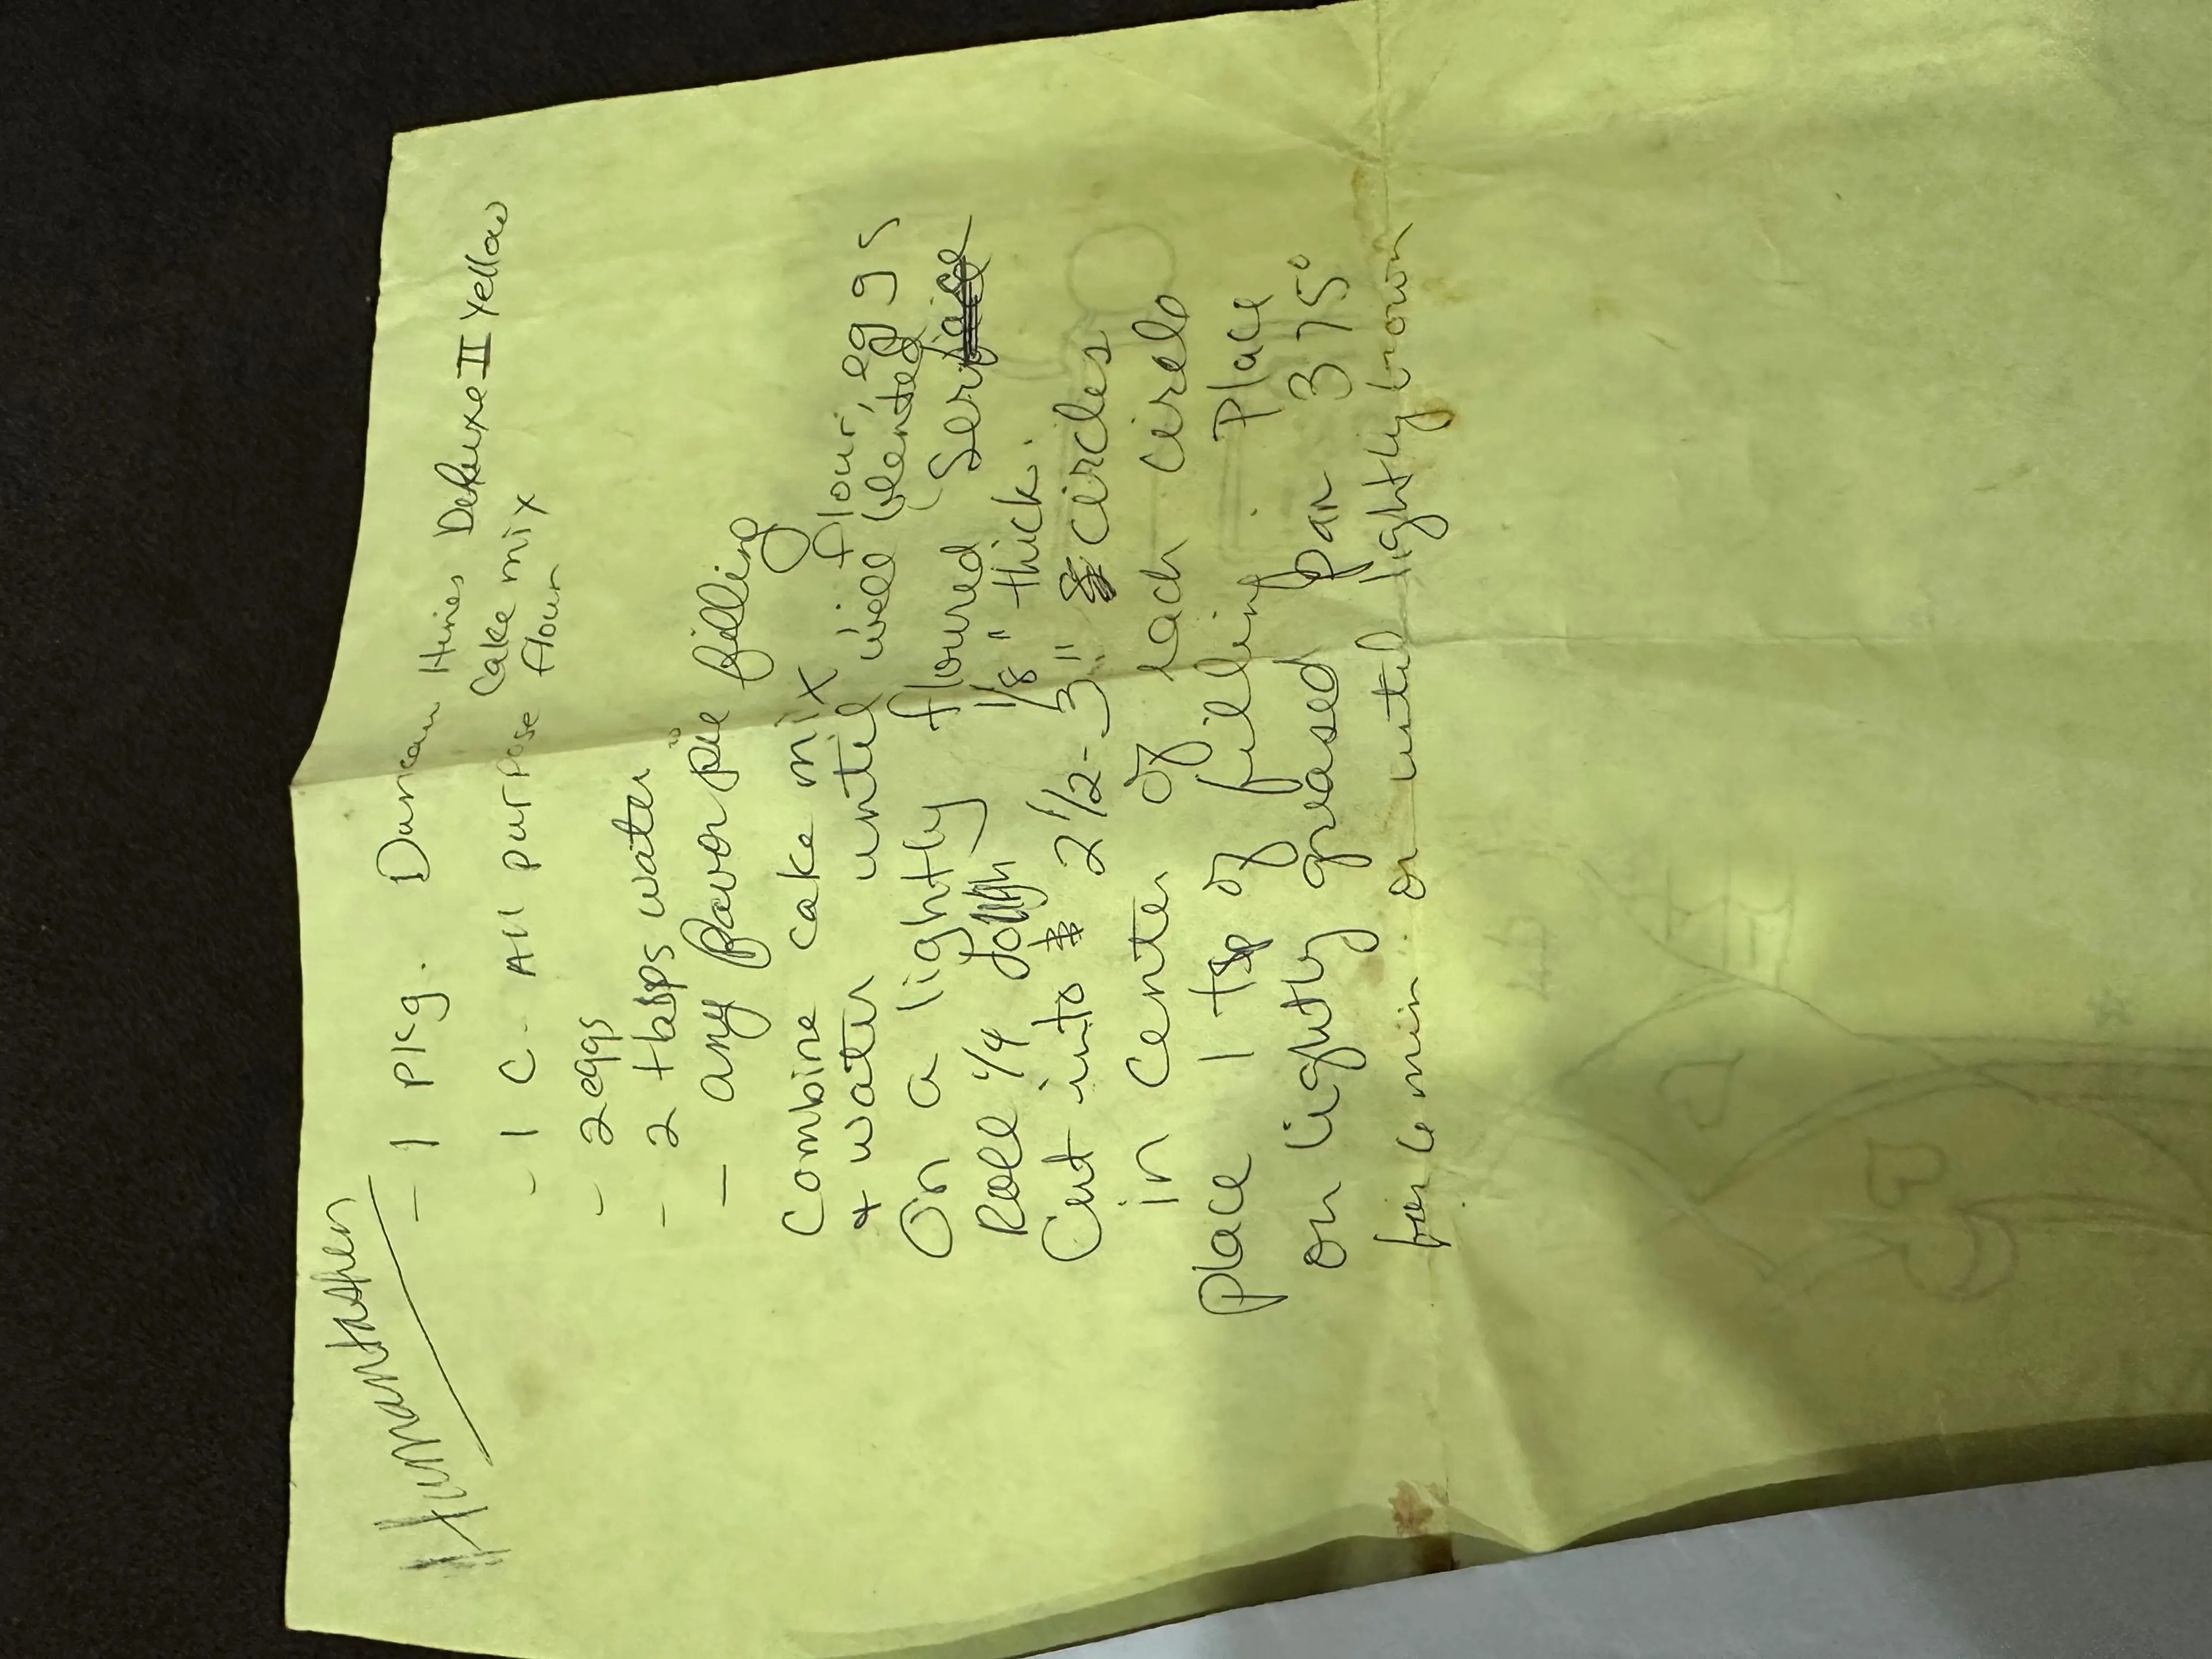 Humantashen
- 1 pkg. Duncan Hines Deluxe II Yellow
cake mix
- 1 C - All purpose flour
- 2 eggs
- 2 tbsps water
- any flavor pie filling
Combine cake mix, flour, eggs
+ water until well blented
On a lightly floured Serface
Roll 1/4 dough 1/8" thick.
Cut into 2 1/2 - 3" circles
in center of each circle
place 1 tsp of filling. Place
on lightly greased pan 375°
for 6 min. or until lightly brown